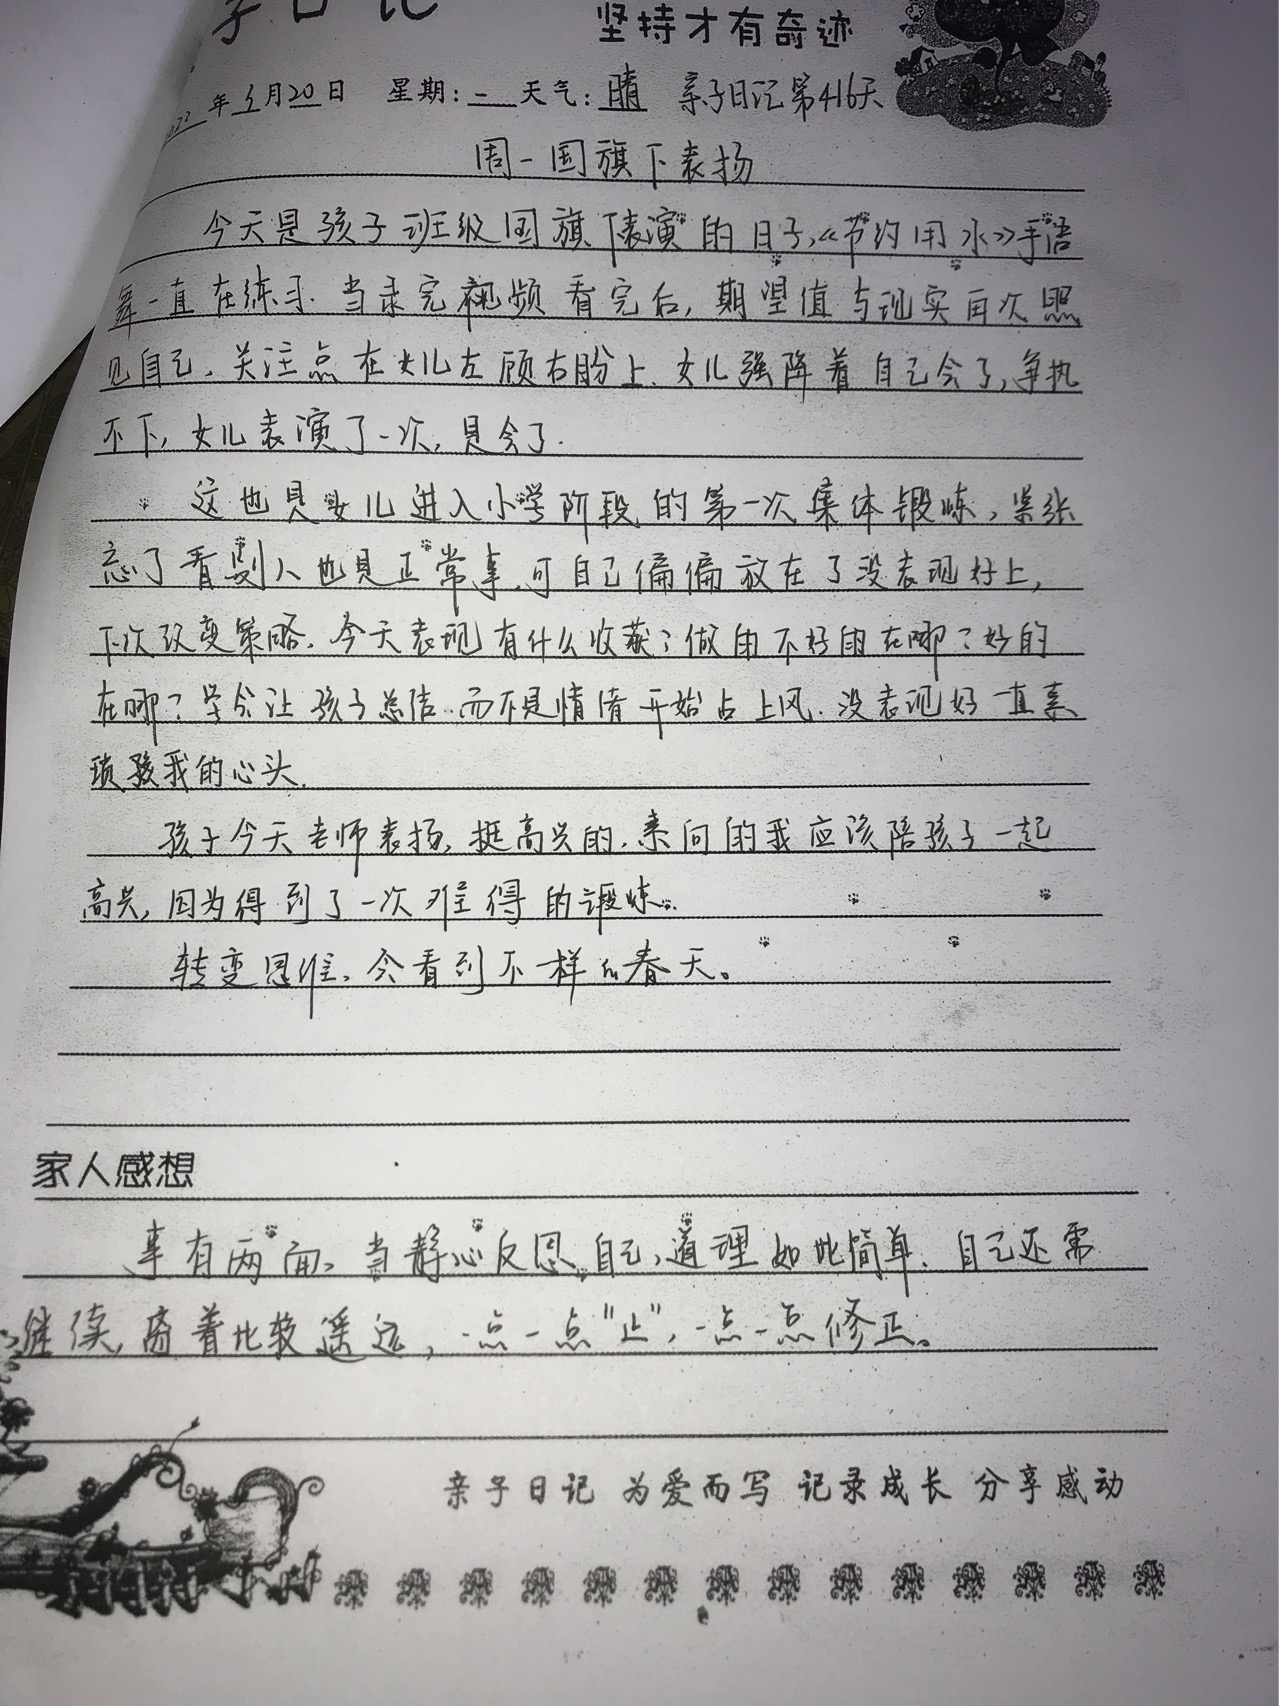 子日记 坚持才有奇迹
2022年 月20日 星期:一 天气:晴 亲子日记第416天
周一国旗下表扬
今天是孩子班级国旗下表演的日子,《节约用水》手语
舞一直在练习.当录完视频看完后,期望值与现实再次照
见自己.关注点在女儿左顾右盼上.女儿强降着自己会了,争执
不下,女儿表演了一次,是会了.
这也是女儿进入小学阶段的第一次集体锻炼,紧张
忘了看别人也是正常事.可自己偏偏放在了没表现好上,
下次改变策略.今天表现有什么收获?做的不好的在哪?好的
在哪?学会让孩子总结.而不是情绪开始占上风.没表现好一直
我的心头.
孩子今天老师表扬,挺高兴的.素问的我应该陪孩子一起
高兴,因为得到了一次难得的锻炼.
转变思维,会看到不一样的春天。
家人感想
事有两面,当静心反思自己,道理如此简单.自己还需
继续,离着比较遥远,一点一点"止",一点一点修正。
亲子日记 为爱而写 记录成长 分享感动